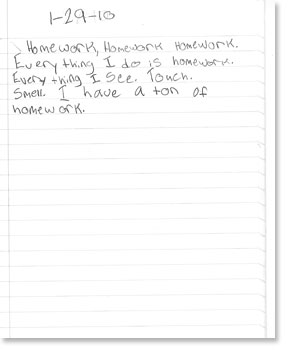 1-29-10
Homework, Homework Homework.
Every thing I do is homework.
Every thing I see. Touch.
Smell. I have a ton of
homework.